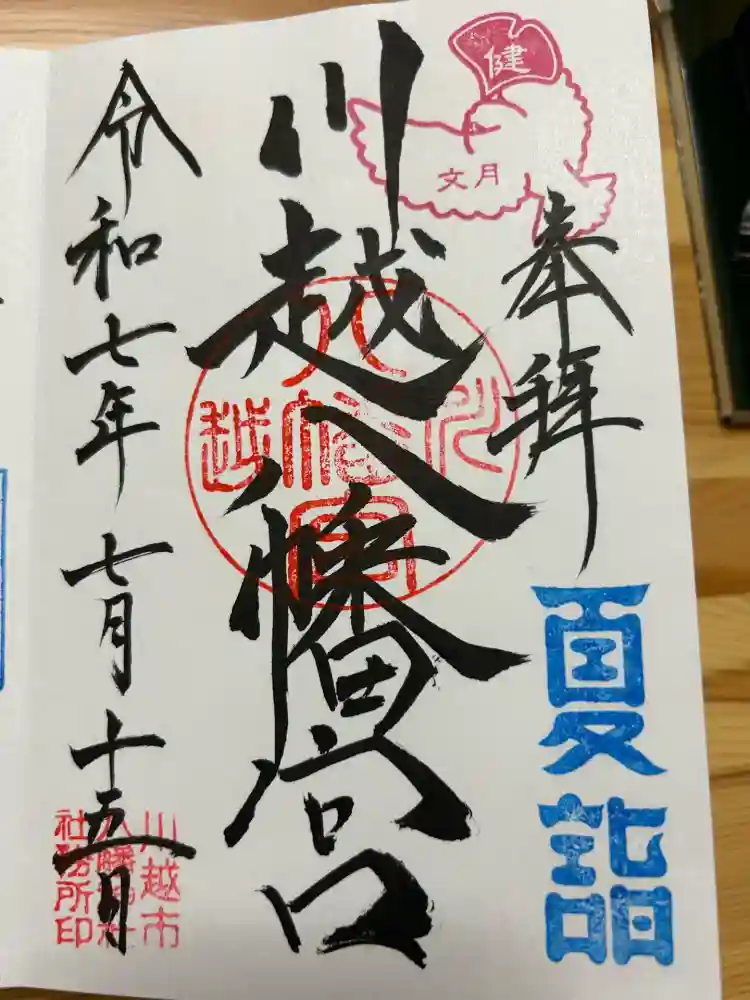 健
文月
奉拝
夏詣
川越八幡宮
令和七年七月十五日
川越市
八幡神社
社務所印